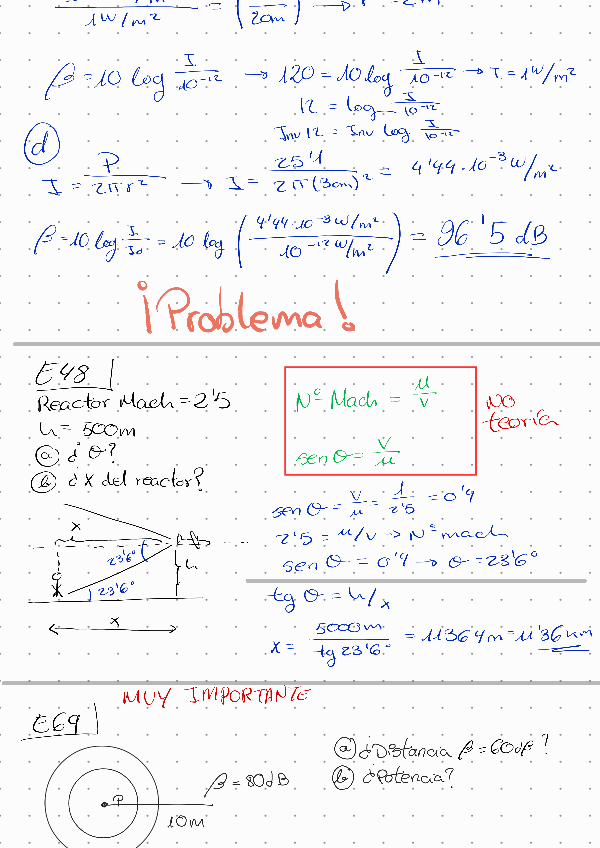 1W/m² = ( /20m) →
β = 10 log I/10⁻¹² → 120 = 10 log I/10⁻¹² → I = 1W/m²
12 = log I/10⁻¹²
Inv 12 = Inv log I/10⁻¹²
d
I = P/2πr² → I = 25'1/2π(30m)² = 4'44·10⁻³W/m²
β = 10 log I/I₀ = 10 log (4'44·10⁻³W/m²/10⁻¹²W/m²) = 96'5 dB
¡Problema!
E48
Reactor Mach = 2'5
h = 500m
a) ¿θ?
b) ¿X del reactor?
Nº Mach = μ/v
sen θ = v/μ
NO
teoría
x
23'6°
h
23'6°
x
sen θ = v/μ = 1/2'5 = 0'4
2'5 = μ/v → Nº mach
sen θ = 0'4 → θ = 23'6°
tg θ = h/x
x = 5000m/tg 23'6° = 11364m = 11'36 km
MUY IMPORTANTE
E69
P
10m
β = 80dB
a) ¿Distancia β = 60dB?
b) ¿Potencia?